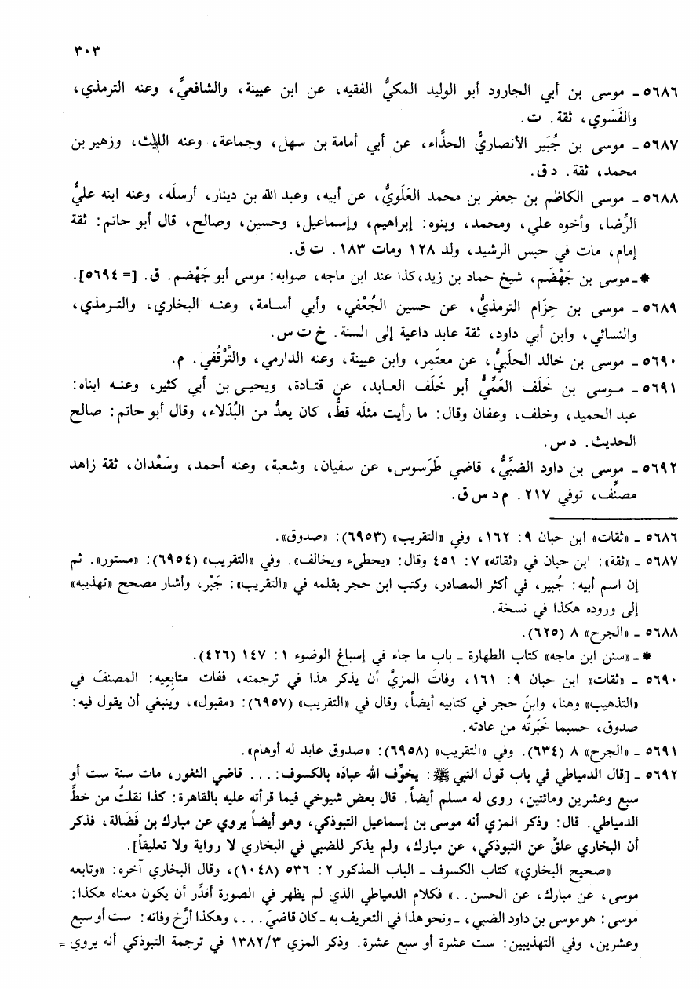 ٣٠٣
٥٦٨٦ ـ موسى بن أبي الجارود أبو الوليد المكيُّ الفقيه، عن ابن عيينة، والشافعيِّ، وعنه الترمذي،
والفَسَوي، ثقة. ت.
٥٦٨٧ ـ موسى بن جُبَير الأنصاريُّ الحذَّاء، عن أبي أمامة بن سهل، وجماعة، وعنه الليث، وزهير بن
محمد، ثقة. د ق.
٥٦٨٨ ـ موسى الكاظم بن جعفر بن محمد العَلَويُّ، عن أبيه، وعبد الله بن دينار، أرسلَه، وعنه ابنه عليُّ
الرِّضا، وأخوه علي، ومحمد، وبنوه: إبراهيم، وإسماعيل، وحسين، وصالح، قال أبو حاتم: ثقة
إمام، مات في حبس الرشيد، ولد ١٢٨ ومات ١٨٣. ت ق.
* ـ موسى بن جَهْضَم، شيخ حماد بن زيد، كذا عند ابن ماجه، صوابه: موسى أبو جَهْضم. ق. [= ٥٦٩٤].
٥٦٨٩ ـ موسى بن حِزَام الترمذيُّ، عن حسين الجُعْفي، وأبي أسامة، وعنه البخاري، والترمذي،
والنسائي، وابن أبي داود، ثقة عابد داعية إلى السنة. خ ت س.
٥٦٩٠ ـ موسى بن خالد الحلَبيُّ، عن معتَمِر، وابن عيينة، وعنه الدارمي، والتَّرْقُفي. م.
٥٦٩١ ـ موسى بن خَلَف العَمِّيُّ أبو خَلَف العابد، عن قتادة، ويحيى بن أبي كثير، وعنه ابناه:
عبد الحميد، وخلف، وعفان وقال: ما رأيت مثلَه قطُّ، كان يعدُّ من البُدَلاء، وقال أبو حاتم: صالح
الحديث. د س.
٥٦٩٢ ـ موسى بن داود الضبِّيُّ، قاضي طَرَسوس، عن سفيان، وشعبة، وعنه أحمد، وسَعْدان، ثقة زاهد
مصنِّف، توفي ٢١٧. م د س ق.
٥٦٨٦ ـ «ثقات» ابن حبان ٩: ١٦٢، وفي «التقريب» (٦٩٥٣): «صدوق».
٥٦٨٧ ـ «ثقة»: ابن حبان في «ثقاته» ٧: ٤٥١ وقال: «يخطىء ويخالف». وفي «التقريب» (٦٩٥٤): «مستور». ثم
إن اسم أبيه: جُبير، في أكثر المصادر، وكتب ابن حجر بقلمه في «التقريب»: جَبْر، وأشار مصحح «تهذيبه»
إلى وروده هكذا في نسخة.
٥٦٨٨ ـ «الجرح» ٨ (٦٢٥).
* ـ «سنن ابن ماجه» كتاب الطهارة ـ باب ما جاء في إسباغ الوضوء ١: ١٤٧ (٤٢٦).
٥٦٩٠ ـ «ثقات» ابن حبان ٩: ١٦١، وفاتَ المزيَّ أن يذكر هذا في ترجمته، ففات متابِعِيه: المصنفَ في
«التذهيب» وهنا، وابنَ حجر في كتابيه أيضاً، وقال في «التقريب» (٦٩٥٧): «مقبول»، وينبغي أن يقول فيه:
صدوق، حسبما خَبَرتُه من عادته.
٥٦٩١ ـ «الجرح» ٨ (٦٣٤). وفي «التقريب» (٦٩٥٨): «صدوق عابد له أوهام».
٥٦٩٢ ـ [قال الدمياطي في باب قول النبي ﷺ: يخوِّف الله عباده بالكسوف: ... قاضي الثغور، مات سنة ست أو
سبع وعشرين ومائتين، روى له مسلم أيضاً. قال بعض شيوخي فيما قرأته عليه بالقاهرة: كذا نقلتُ من خطِّ
الدمياطي. قال: وذكر المزي أنه موسى بن إسماعيل التبوذكي، وهو أيضاً يروي عن مبارك بن فَضَالة، فذكر
أن البخاري علَّق عن التبوذكي، عن مبارك، ولم يذكر للضبي في البخاري لا رواية ولا تعليقاً].
«صحيح البخاري» كتاب الكسوف ـ الباب المذكور ٢: ٥٣٦ (١٠٤٨)، وقال البخاري آخره: «وتابعه
موسى، عن مبارك، عن الحسن..» فكلام الدمياطي الذي لم يظهر في الصورة أقدِّر أن يكون معناه هكذا:
موسى: هو موسى بن داود الضبي، ـ ونحو هذا في التعريف به ـ كان قاضيَ ...، وهكذا أرَّخ وفاته: ست أو سبع
وعشرين، وفي التهذيبين: ست عشرة أو سبع عشرة. وذكر المزي ١٣٨٢/٣ في ترجمة التبوذكي أنه يروي =